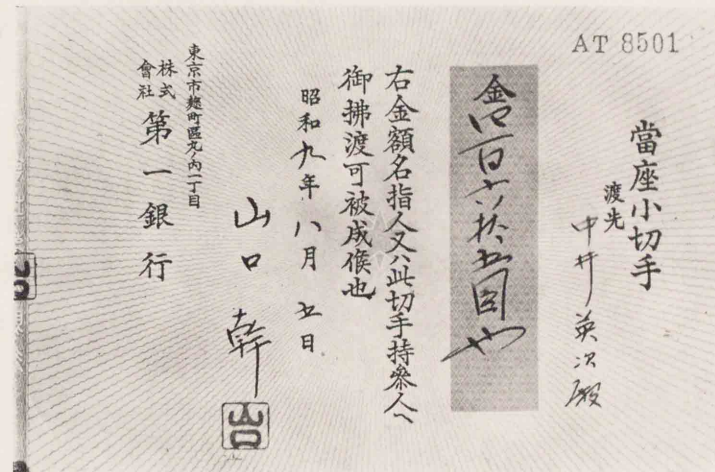 AT 8501
當座小切手
渡先 中井英次殿
金四百六拾五圓也
右金額名指人又ハ此切手持參人へ
御拂渡可被成候也
昭和九年八月五日
山口幹
東京市麴町區丸ノ內一丁目
株式會社 第一銀行